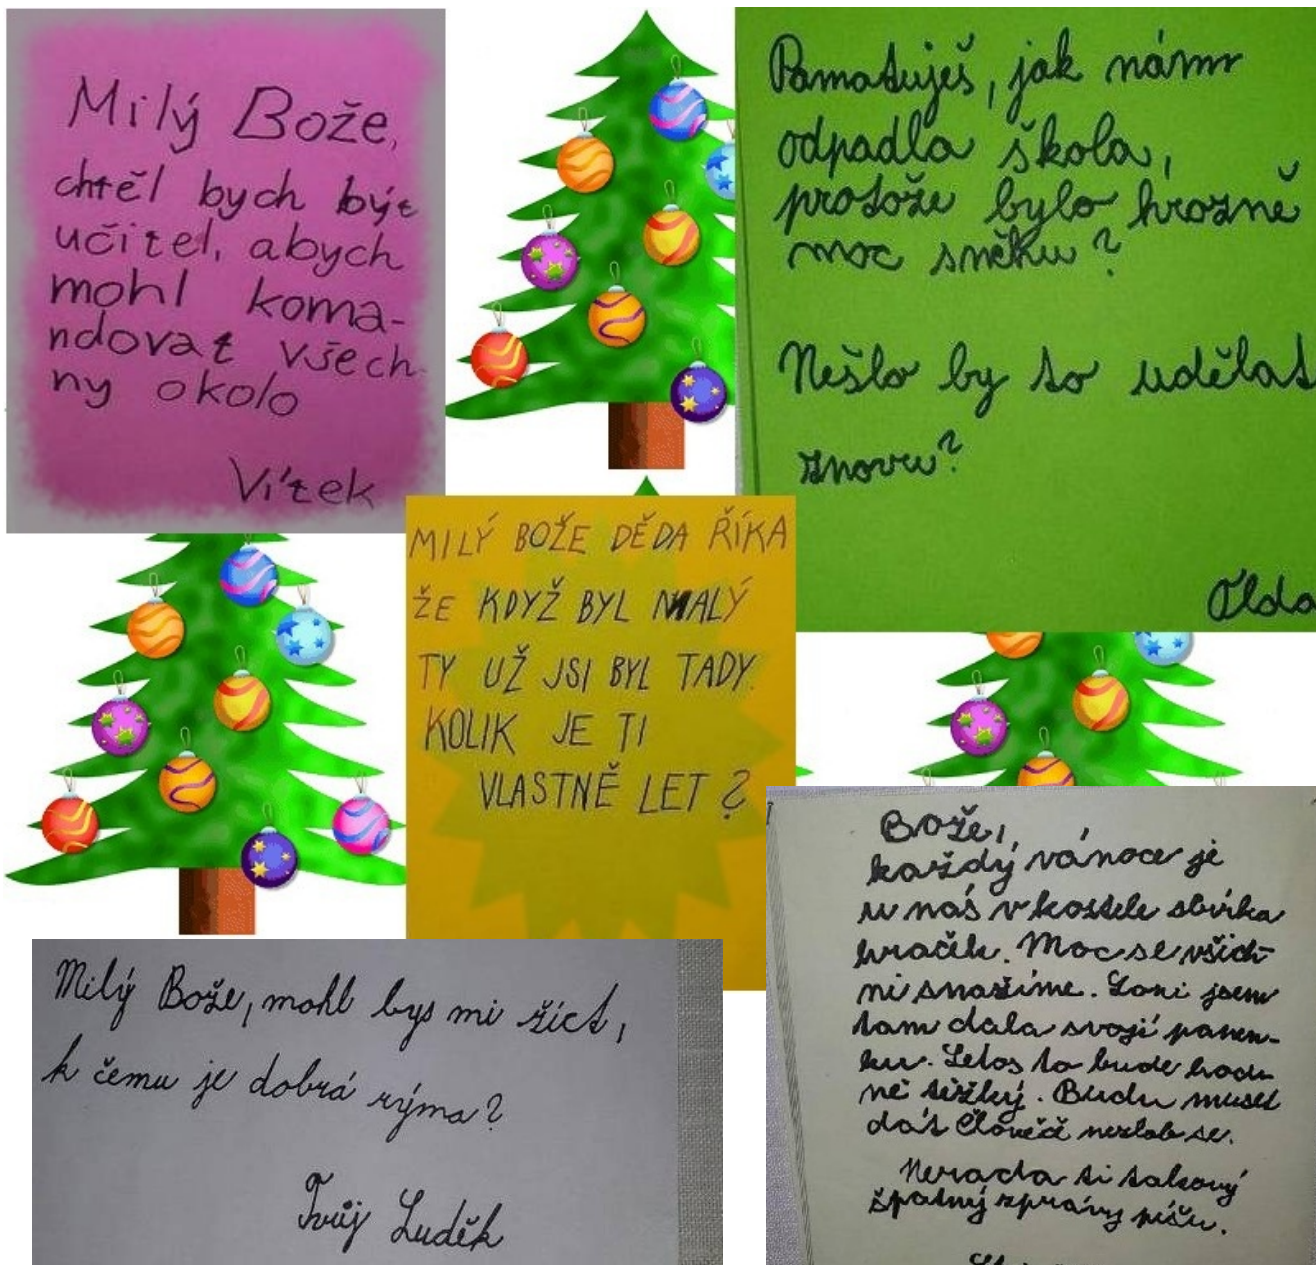 Milý Bože,
chtěl bych být
učitel, abych
mohl koma-
ndovat všech-
ny okolo
Vítek
Pamatuješ, jak nám
odpadla škola,
protože bylo hrozně
moc sněhu?
Nešlo by to udělat
znovu?
Olda
MILÝ BOŽE DĚDA ŘÍKA
ŽE KDYŽ BYL MALÝ
TY UŽ JSI BYL TADY.
KOLIK JE TI
VLASTNĚ LET?
Milý Bože, mohl bys mi říct,
k čemu je dobrá rýma?
Tvůj Luděk
Bože,
každý vánoce je
u nás v kostele sbírka
hraček. Moc se všich-
ni snažíme. Loni jsem
tam dala svojí panen-
ku. Letos to bude hod-
ně těžký. Budu muset
dát Člověče nezlob se.
Nerada ti takový
špatný zprávy píšu.